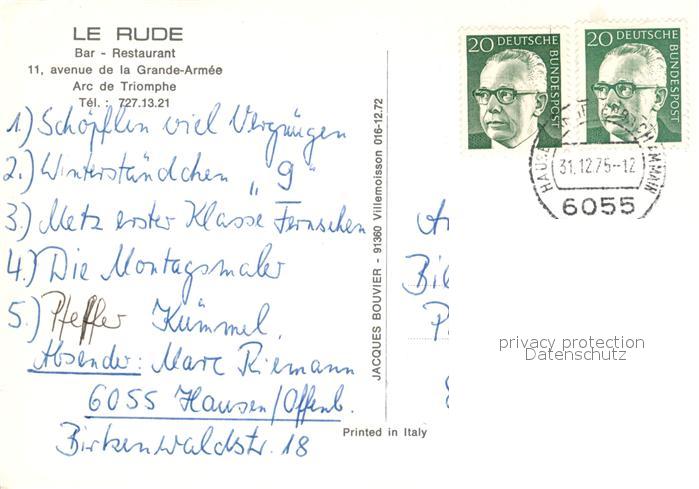 LE RUDE
Bar - Restaurant
11, avenue de la Grande-Armée
Arc de Triomphe
Tél. : 727.13.21
1.) Schöpflen viel Vergnügen
2.) Winterständchen „9"
3.) Metz erster Klasse Fernsehen
4.) Die Montagsmaler
5.) Pfeffer Kümmel.
Absender: Marc Riemann
6055 Hausen/Offenb.
Birkenwaldstr. 18
JACQUES BOUVIER - 91360 Villemoisson 016-12.72
Printed in Italy
20 DEUTSCHE BUNDESPOST
20 DEUTSCHE BUNDESPOST
31.12.75-12
6055
privacy protection
Datenschutz